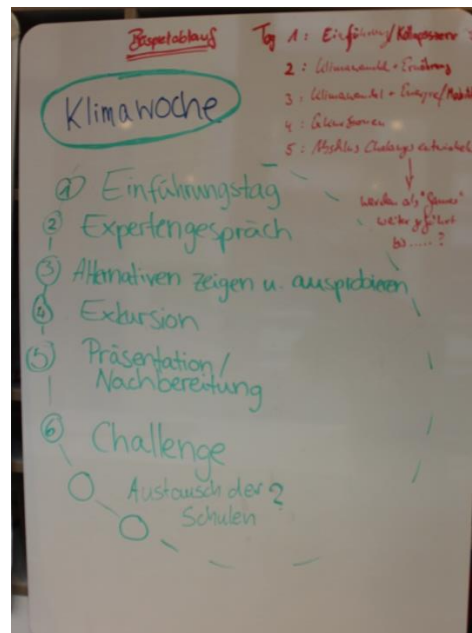 Beispielablauf
Tag 1: Einführung/
2: Klimawandel + Ernährung
3: Klimawandel + Energie/
4: Exkursionen
5: Challenge entwickeln
werden als "Games"
weitergeführt
bis.....?
Klimawoche
1 Einführungstag
2 Expertengespräch
3 Alternativen zeigen u. ausprobieren
4 Exkursion
5 Präsentation/
Nachbereitung
6 Challenge
Austausch der ?
Schulen